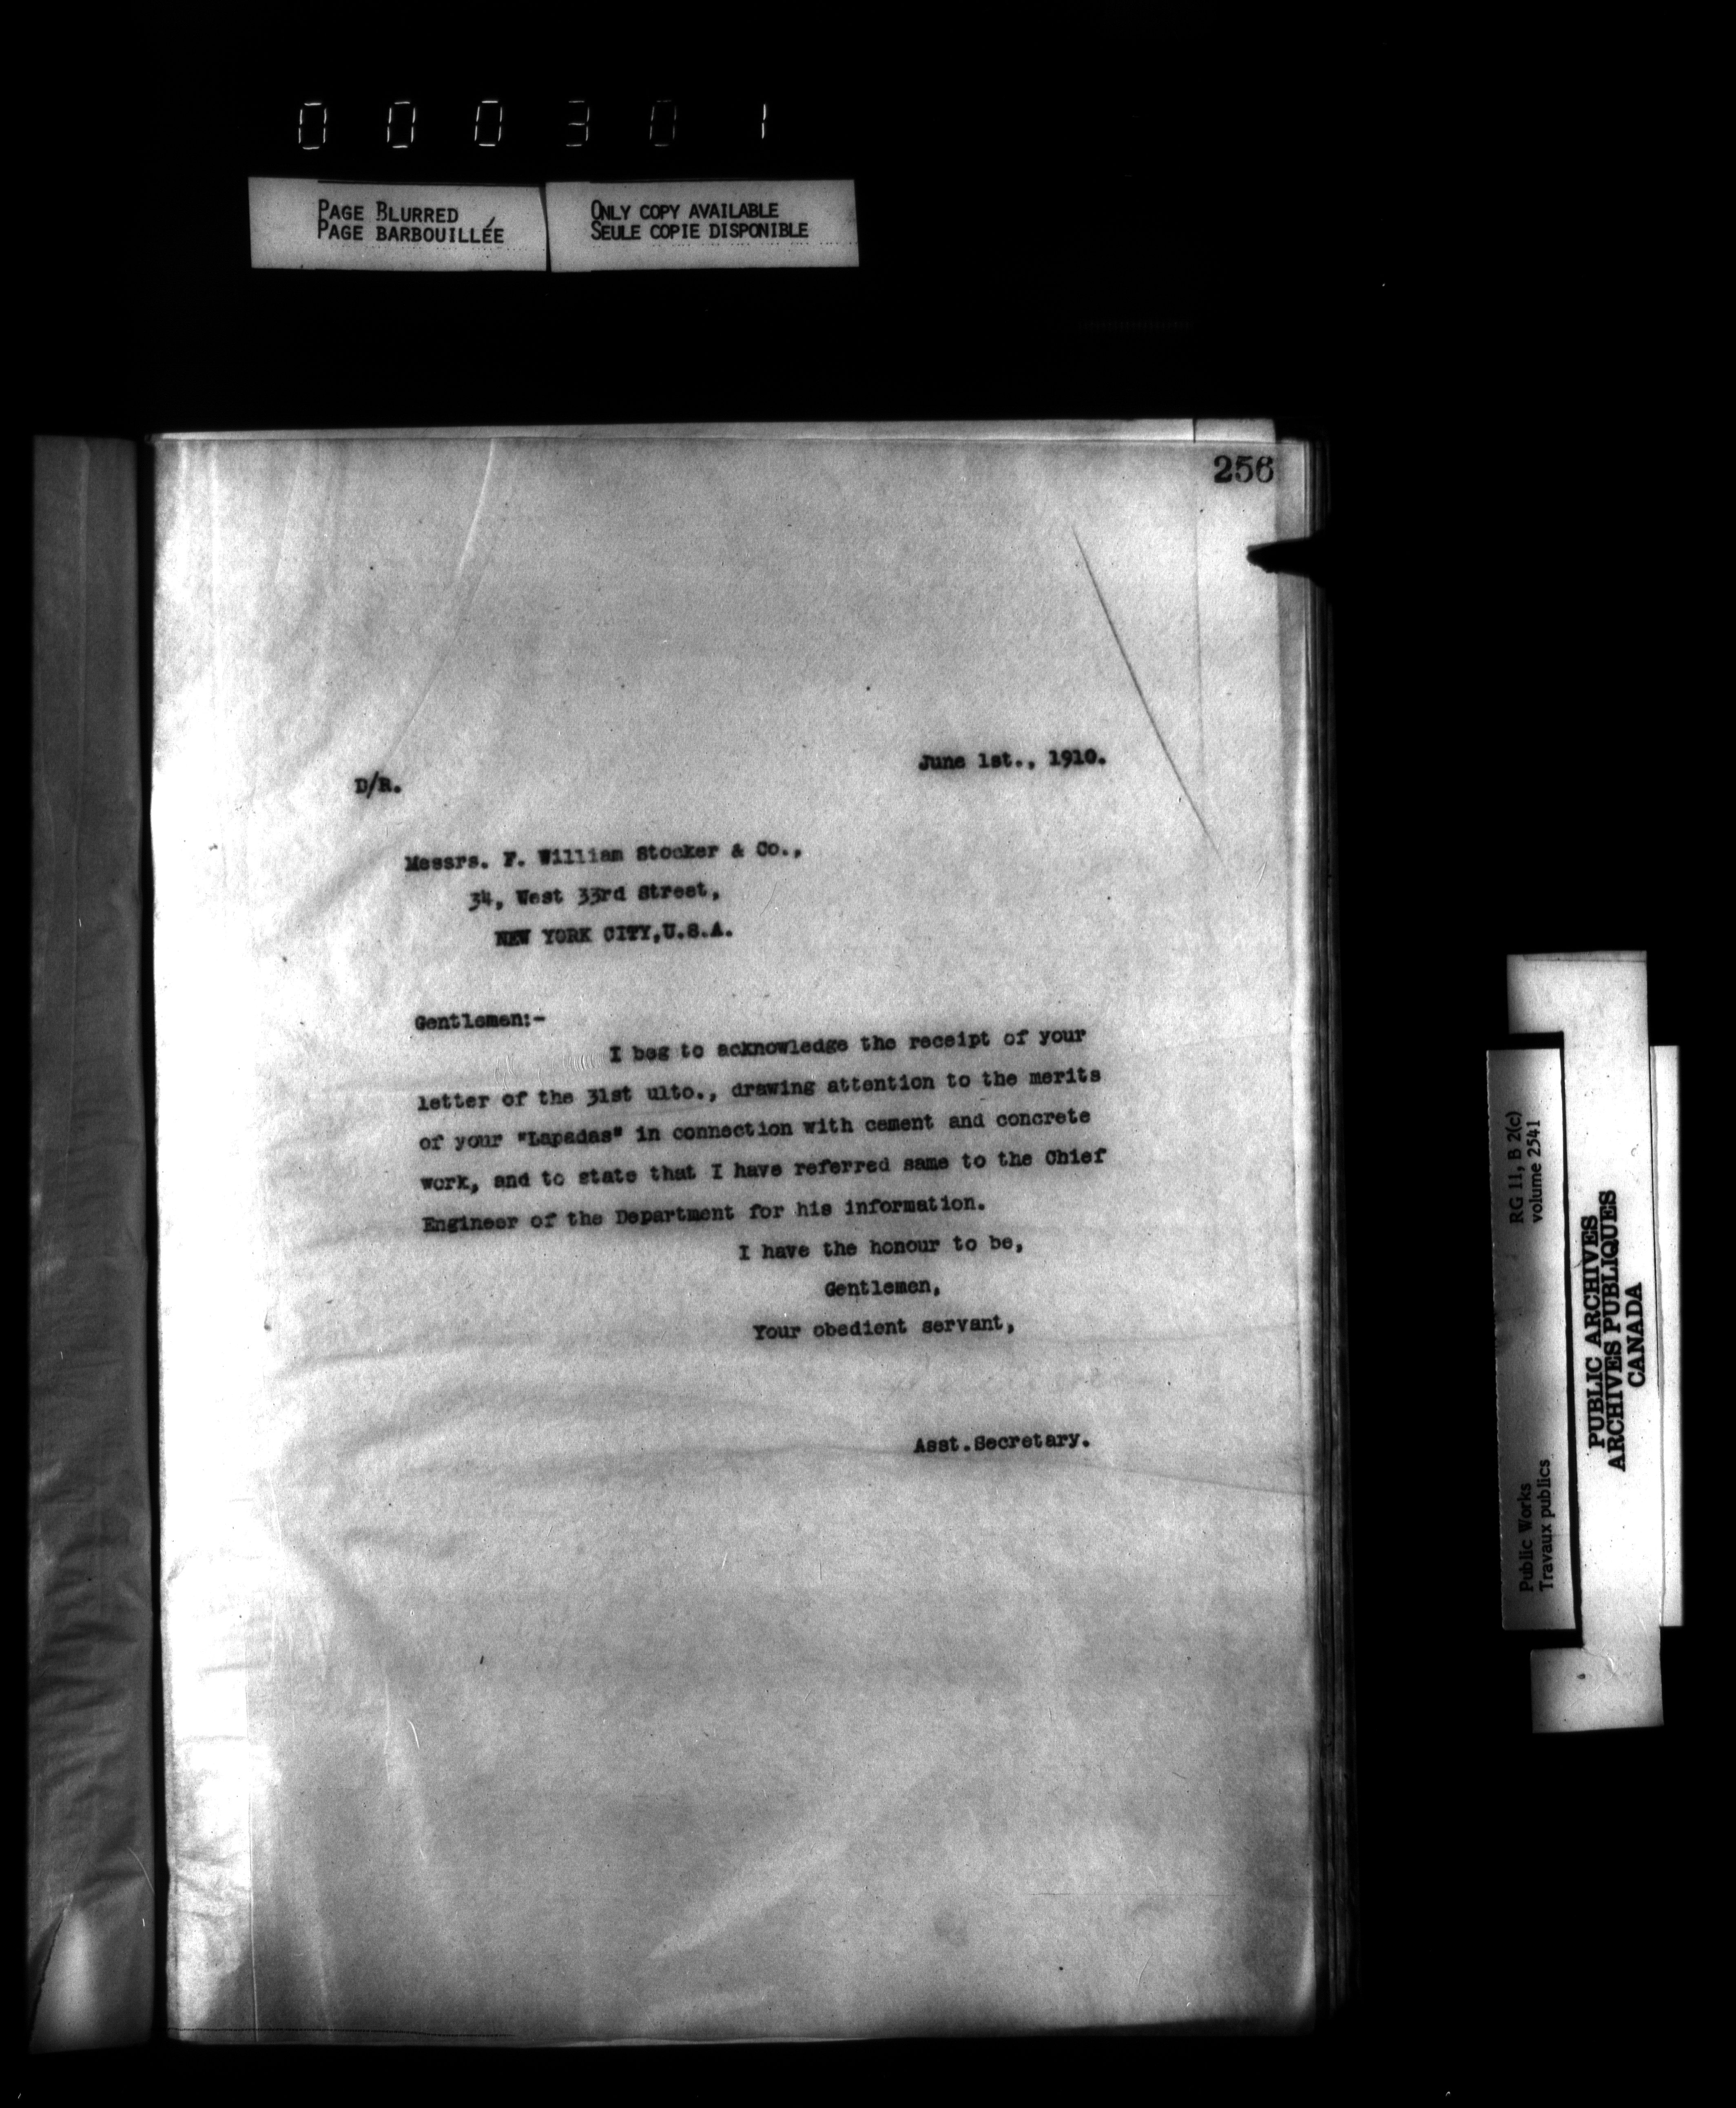 000301
PAGE BLURRED
PAGE BARBOUILLÉE
ONLY COPY AVAILABLE
SEULE COPIE DISPONIBLE
256
June 1st., 1910.
D/R.
Messrs. F. William Stocker & Co.,
34, West 33rd Street,
NEW YORK CITY,U.S.A.
Gentlemen:-
I beg to acknowledge the receipt of your
letter of the 31st ulto., drawing attention to the merits
of your "Lapadas" in connection with cement and concrete
work, and to state that I have referred same to the Chief
Engineer of the Department for his information.
I have the honour to be,
Gentlemen,
Your obedient servant,
Asst.Secretary.
RG 11, B 2(c)
volume 2541
Public Works
Travaux publics
PUBLIC ARCHIVES
ARCHIVES PUBLIQUES
CANADA